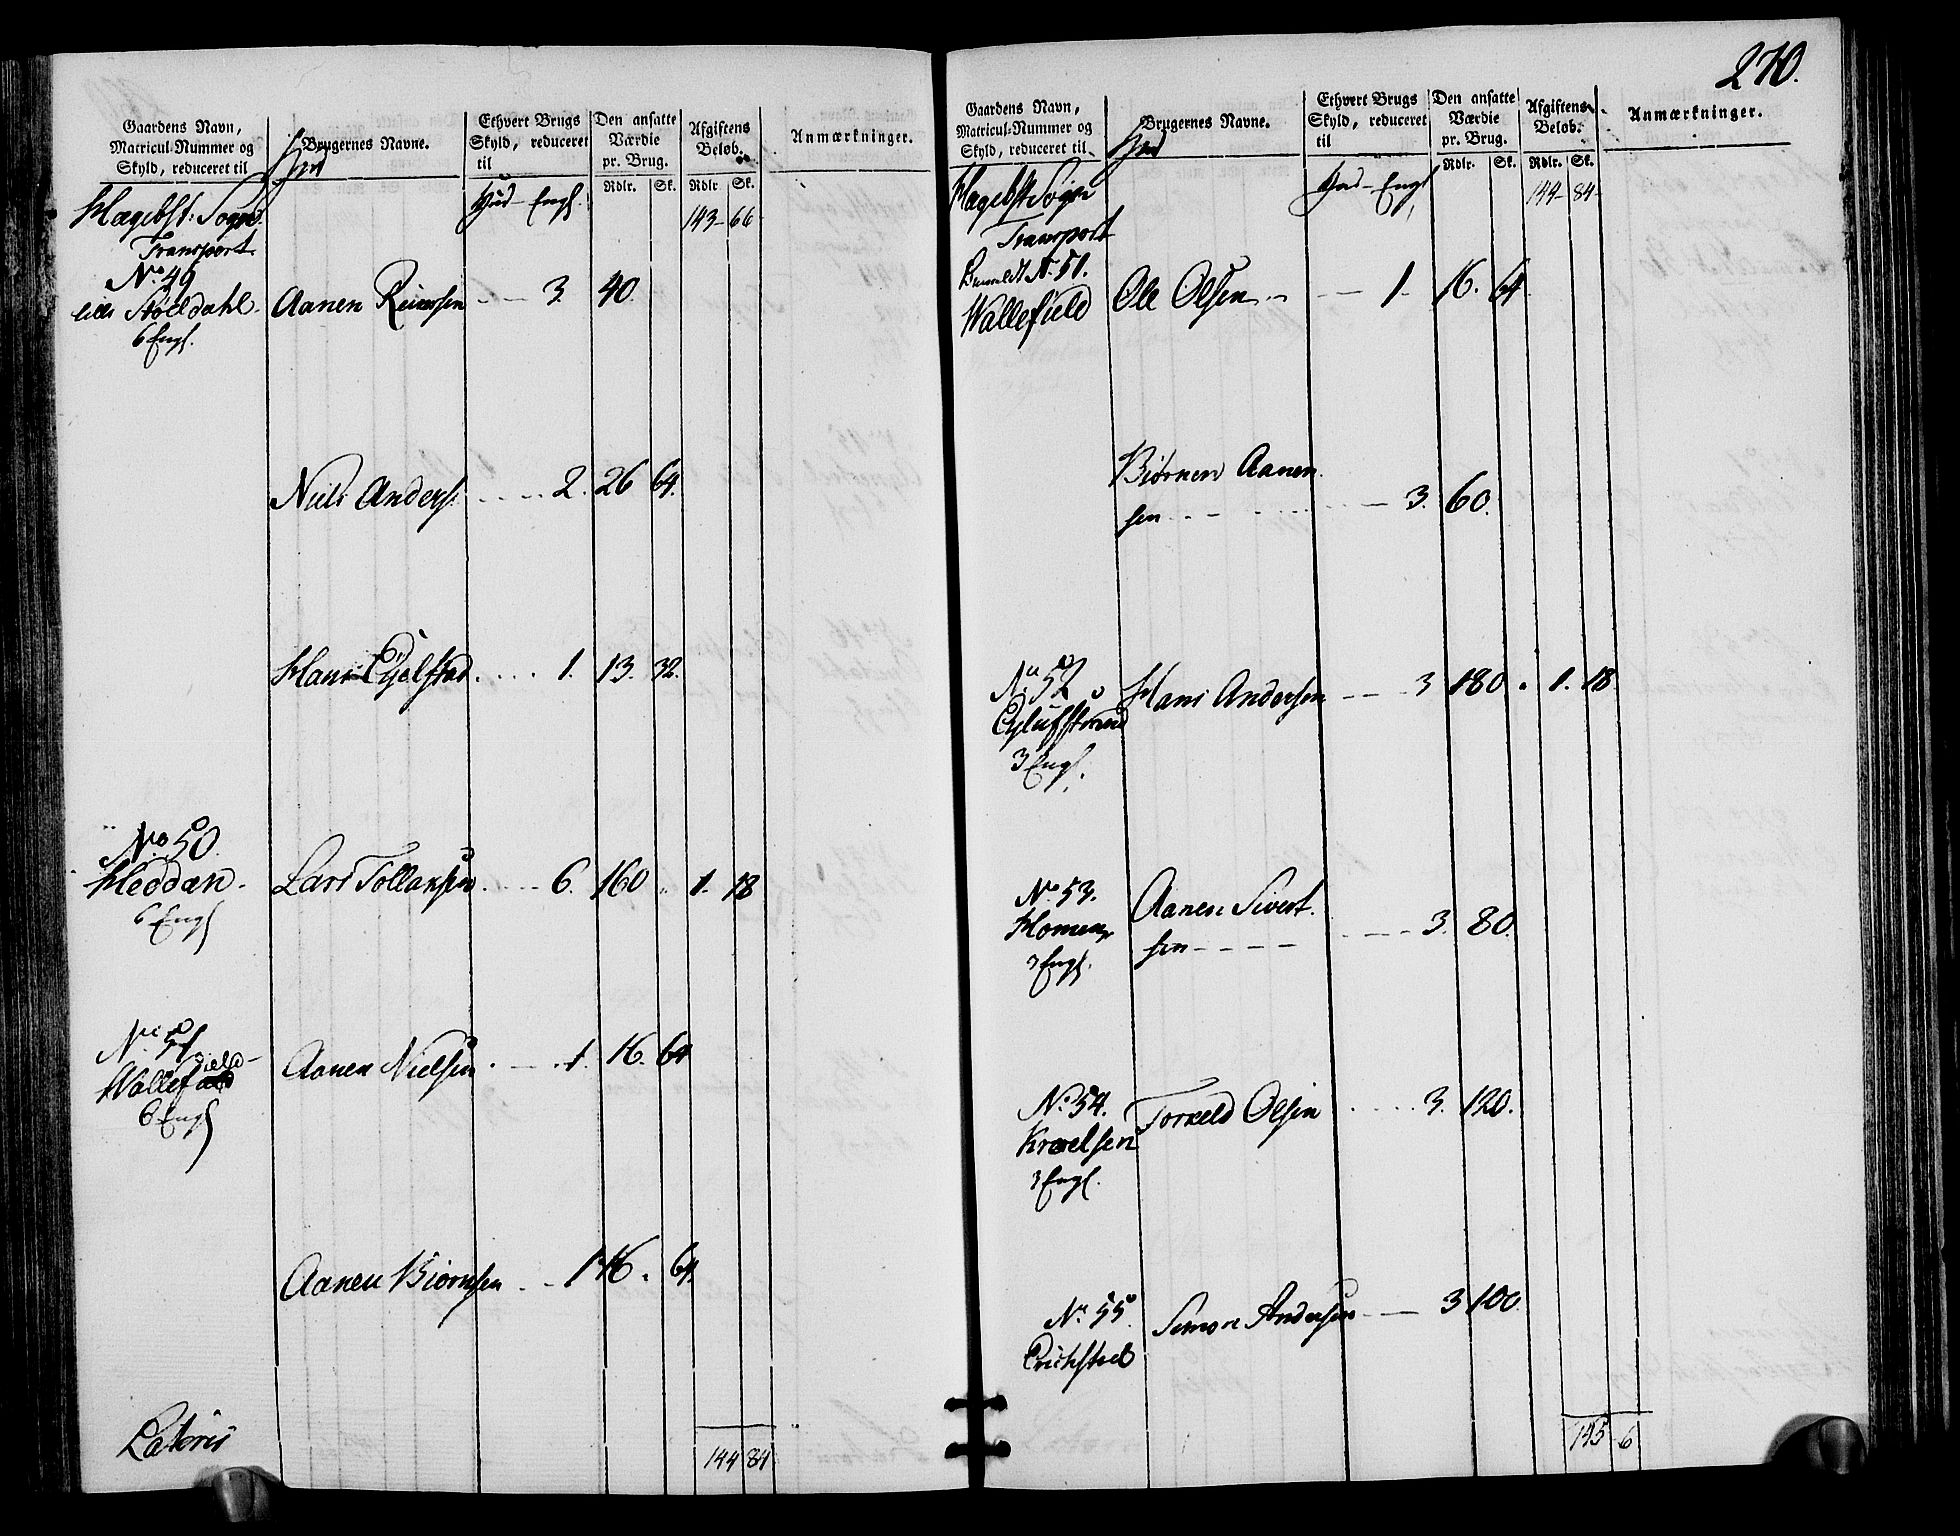 Gaardens Navn,
Matricul-Nummer og
Skyld, reduceret til
Brugernes Navne.
Ethvert Brugs
Skyld, reduceret
til
Den ansatte
Værdie
pr. Brug.
Rdlr. Sk.
Afgiftens
Beløb.
Rdlr Sk.
Anmærkninger.
Hud
Hægebst: Sogn Hud - Engl. 143 - 66
Transport
No. 49
lille Støeldahl Aanen Reiersen - - 3. 40.
6 Engl.
Niels Anders. . . . . 2. 26 64.
Hans Eyelstad . . . . 1. 13. 32.
No. 50.
Heddan. Lars Tollansen . . . . 6. 160 „ 1. 18
6 Engl
No. 51
Wallefield Aanen Nielsen . - - . 1. 16. 64
6 Engl
Aanen Biørnsen . - 1 16. 64.
Lateris 144 84
270.
Gaardens Navn,
Matricul-Nummer og
Skyld, reduceret til
Brugernes Navne.
Ethvert Brugs
Skyld, reduceret
til
Den ansatte
Værdie
pr. Brug.
Rdlr. Sk.
Afgiftens
Beløb.
Rdlr. Sk.
Anmærkninger.
Hud
Hægebst Sogn Hud - Engl 144 - 84 -
Transport
No. 51.
Wallefield Ole Olsen - - 1. 16. 64
Biørnen Aanen
sen - - - 3. 60.
No. 52
Eylufstrand Hans Andersen - - 3 180 . 1. 18
3 Engl.
No. 53. Aanen Sivert
Homen
sen - - - - 3. 80.
3 Engl.
No. 54. Torkeld Olsen . . . . 3. 120.
Kroelsen
3 Engl.
No. 55 Simon Andersen - - 3 100.
Erichstad
145 6